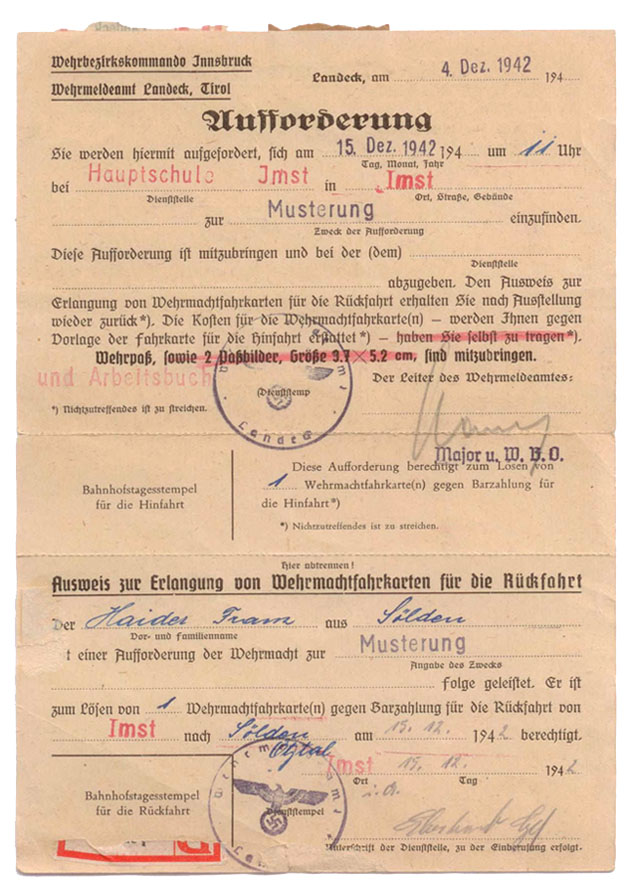 Wehrbezirkskommando Innsbruck
Wehrmeldeamt Landeck, Tirol
Landeck, am 4. Dez. 1942 194
Aufforderung
Sie werden hiermit aufgefordert, sich am 15. Dez. 1942 194 um 11 Uhr
Tag, Monat, Jahr
bei Hauptschule Imst in Imst
Dienststelle Ort, Straße, Gebäude
zur Musterung einzufinden.
Zweck der Aufforderung
Diese Aufforderung ist mitzubringen und bei der (dem)
Dienststelle
abzugeben. Den Ausweis zur
Erlangung von Wehrmachtfahrkarten für die Rückfahrt erhalten Sie nach Ausstellung
wieder zurück*). Die Kosten für die Wehrmachtfahrkarte(n) – werden Ihnen gegen
Vorlage der Fahrkarte für die Hinfahrt erstattet*) – haben Sie selbst zu tragen*).
Wehrpaß, sowie 2 Paßbilder, Größe 3.7 × 5.2 cm, sind mitzubringen.
und Arbeitsbuch
Der Leiter des Wehrmeldeamtes:
Dienststemp
Landeck
*) Nichtzutreffendes ist zu streichen.
Major u. W. B. O.
Bahnhofstagesstempel
für die Hinfahrt
Diese Aufforderung berechtigt zum Lösen von
1 Wehrmachtfahrkarte(n) gegen Barzahlung für
die Hinfahrt*)
*) Nichtzutreffendes ist zu streichen.
Hier abtrennen!
Ausweis zur Erlangung von Wehrmachtfahrkarten für die Rückfahrt
Der Haider Franz aus Sölden
Vor- und Familienname
t einer Aufforderung der Wehrmacht zur Musterung
Angabe des Zwecks
folge geleistet. Er ist
zum Lösen von 1 Wehrmachtfahrkarte(n) gegen Barzahlung für die Rückfahrt von
Imst nach Sölden am 15. 12. 1942 berechtigt.
Ötztal
Imst 15. 12. 1942
Ort Tag
i. A.
Wehrmeldeamt
Dienststempel
Bahnhofstagesstempel
für die Rückfahrt
Unterschrift der Dienststelle, zu der Einberufung erfolgt.